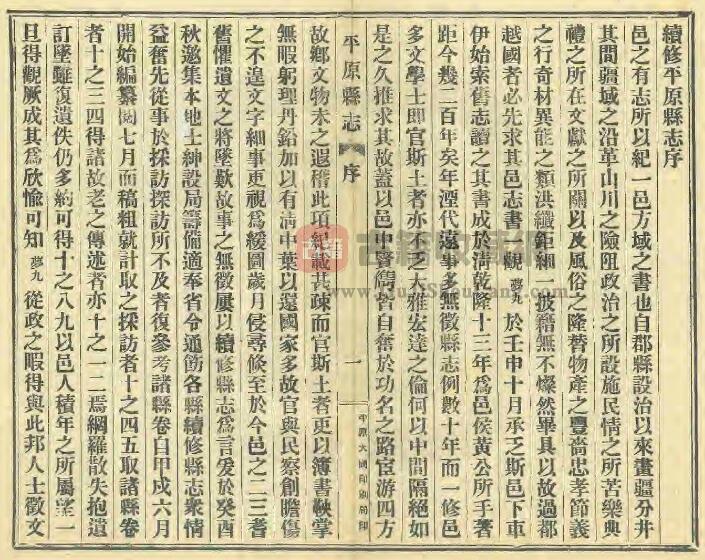 續修平原縣志序
邑之有志所以紀一邑方域之書也自郡縣設治以來畫疆分井
其間疆域之沿革山川之險阻政治之所設施民情之所苦樂典
禮之所在文獻之所關以及風俗之隆替物產之豐嗇忠孝節義
之行奇材異能之類洪纖鉅細一披籍無不燦然畢具以故過都
越國者必先求其邑志書一觀夢九於壬申十月承乏斯邑下車
伊始索舊志讀之其書成於清乾隆十三年爲邑侯黃公所手著
距今幾二百年矣年湮代遠事多無徵縣志例數十年而一修邑
多文學士即官斯土者亦不乏大雅宏達之倫何以中間隔絕如
是之久推求其故蓋以邑中賢儁皆自奮於功名之路宦游四方
平原縣志 序 一 平原大同印刷局印
故鄉文物未之遐稽此項紀載甚疎而官斯土者更以簿書鞅掌
無暇躬理丹鉛加以有清中葉以還國家多故官與民察創瞻傷
之不遑文字細事更視爲緩圖歲月侵尋倏至於今邑之二三耆
舊懼遺文之將墜歎故事之無徵屢以續修縣志爲言爰於癸酉
秋邀集本地士紳設局籌備適奉省令通飭各縣續修縣志衆情
益奮先從事於採訪採訪所不及者復參考諸縣卷自甲戌六月
開始編纂閱七月而稿粗就計取之採訪者十之四五取諸縣卷
者十之三四得諸故老之傳述者亦十之一二焉網羅散失抱遺
訂墜雖復遺佚仍多約可得十之八九以邑人積年之所屬望一
旦得觀厥成其爲欣愉可知夢九從政之暇得與此邦人士徵文
古籍收藏網
www.GuJiShuFang.com